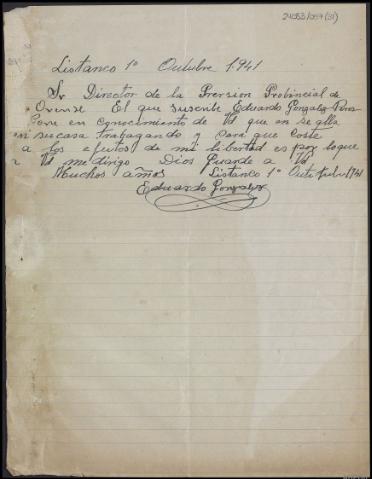 24053/059 (31)
Listanco 1º Outubre 1941
Sr Director de la Prersion Probincial de
Orense El que suscribe Eduardo Gonzalez Peres
Pone en conocimiento de Vd que en se alla
en su casa trabagando y para que Coste
a los efectos de mi libertad es por loque
a Vd me dirigo Dios Guarde a Vd
Muchos años Listanco 1º Outubre 1941
Eduardo Gonzalez